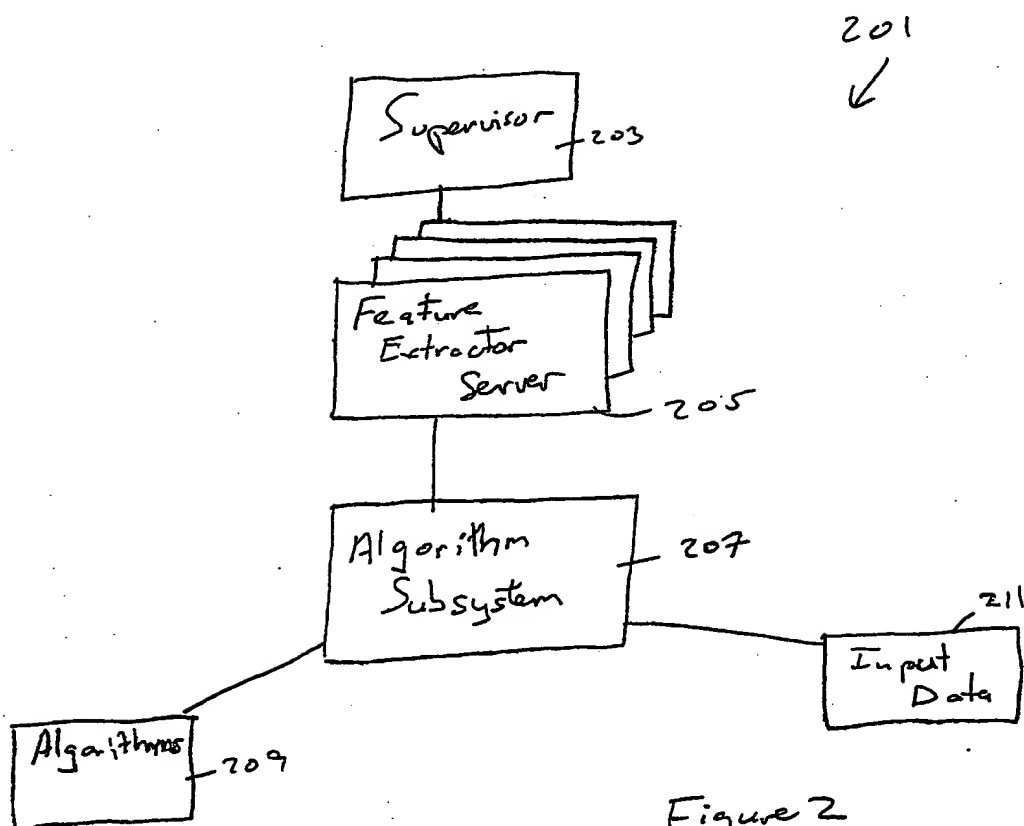 201
Supervisor
203
Feature
Extractor
Server
205
Algorithm
Subsystem
207
211
Input
Data
Algorithms
209
Figure 2